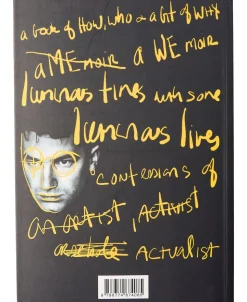 a book of HOW, WHO & a bit of WHY
a MEmoir a WE moir
luminous times with some
luminous lives
confessions of
an artist, Activist
Actualist